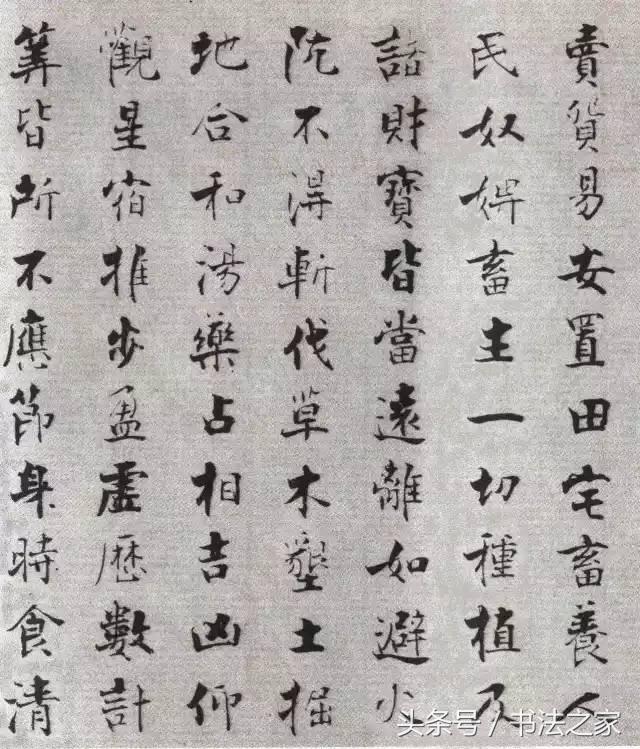 賣貨易安置田宅畜養人
民奴婢畜生一切種植及
諸財寶皆當遠離如避火
阬不得斬伐草木墾土掘
地合和湯藥占相吉凶仰
觀星宿推步盈虛曆數計
筭皆所不應節身時食清
头条号 / 书法之家